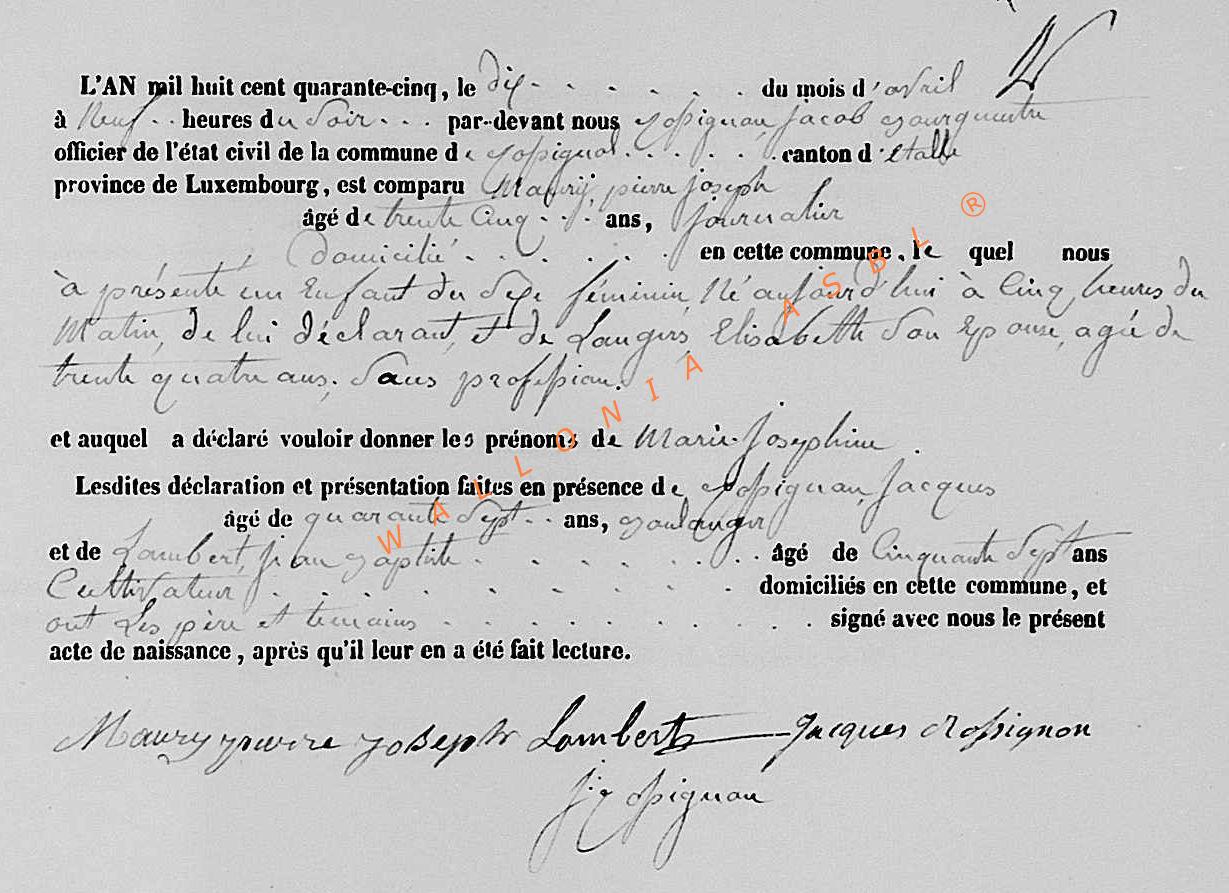 L'AN mil huit cent quarante-cinq, le dix du mois d'avril
à Neuf heures du Soir par-devant nous Rossignon, Jacob Bourguemtre
officier de l'état civil de la commune de Rossignol canton d'étalle
province de Luxembourg, est comparu Maury, pierre joseph
âgé de trente Cinq ans, journalier
Domicilié en cette commune, le quel nous
à présenté un Enfant du Sexe féminin, Né aujourd'hui à Cinq heures du
Matin, de lui déclarant, et de Elisabeth Son Epouse, agée de
trente quatre ans. Sans profession.
et auquel a déclaré vouloir donner les prénoms de Marie-Josephine.
Lesdites déclaration et présentation faites en présence de Rossignon, Jacques
âgé de quarante Sept ans, Boulanger
et de Lambert, jean Baptiste âgé de Cinquante Sept ans
Cultivateur domiciliés en cette commune, et
ont Les père et temoins signé avec nous le présent
acte de naissance, après qu'il leur en a été fait lecture.
Maury pierre joseph Lambert Jacques Rossignon
J. Rossignon
WALLONIA ASBL ®